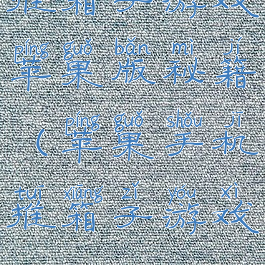 推箱子游戏
píng guǒ bǎn mì jí
苹果版秘籍
píng guǒ shǒu jī
(苹果手机
tuī xiāng zǐ yóu xì
推箱子游戏